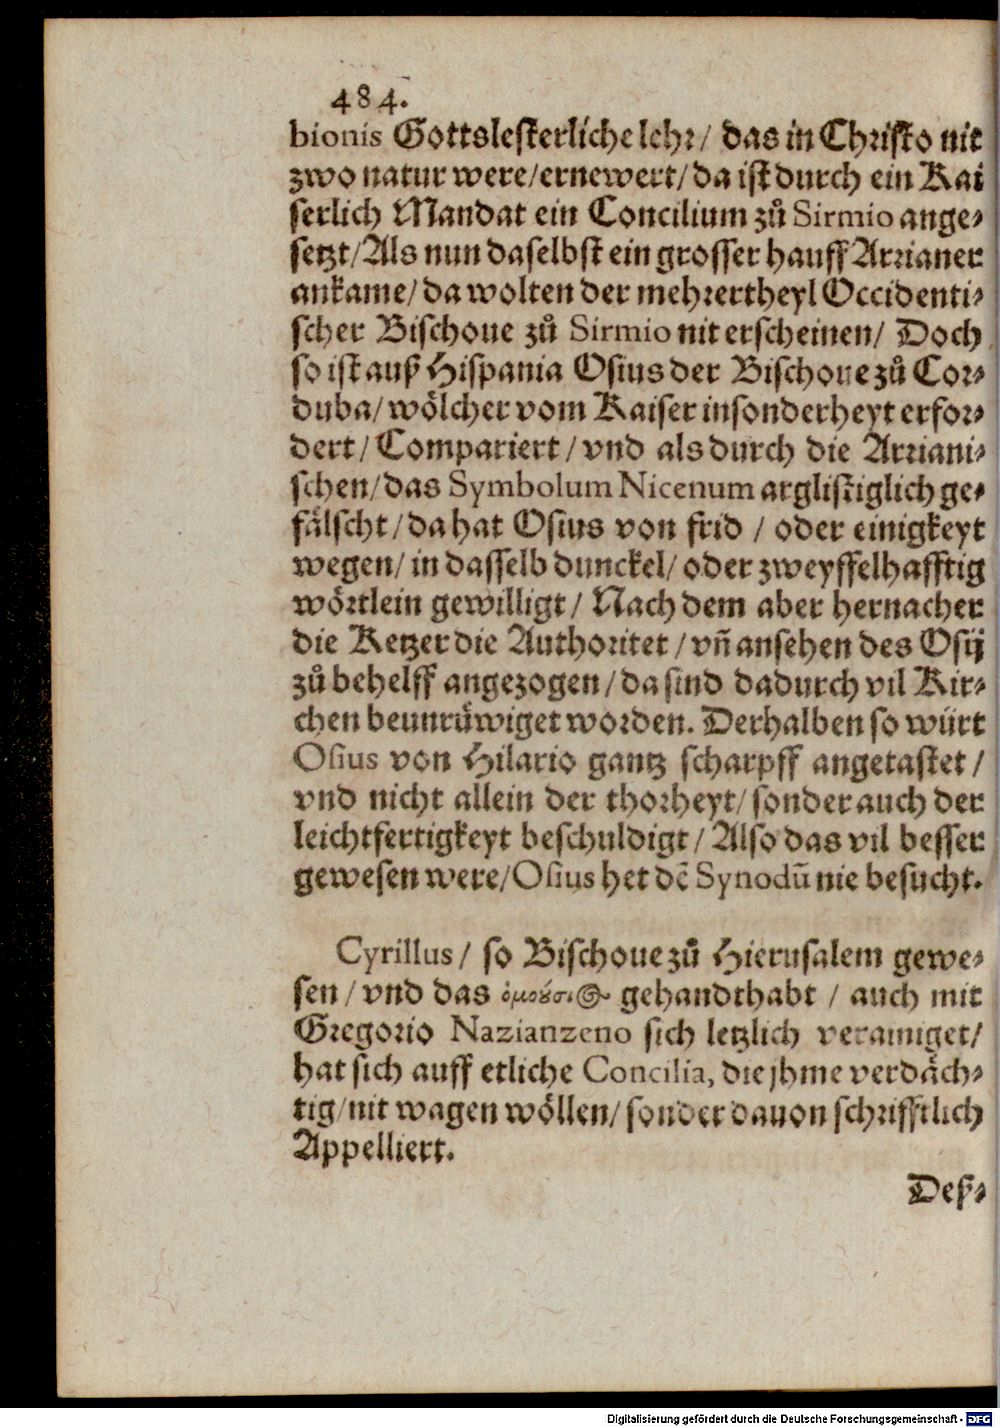 484.
bionis Gottslesterliche lehr/ das in Christo nit
zwo natur were/ernewert/ da ist durch ein Kai
serlich Mandat ein Concilium zů Sirmio ange⸗
setzt/Als nun daselbst ein grosser hauff Arrianer
ankame/ da wolten der mehrertheyl Occidenti⸗
scher Bischoue zů Sirmio nit erscheinen/ Doch
so ist auß Hispania Osius der Bischoue zů Cor⸗
duba/ wölcher vom Kaiser insonderheyt erfor⸗
dert/ Compariert/ vnd als durch die Arriani⸗
schen/ das Symbolum Nicenum arglistiglich ge⸗
fälscht/ da hat Osius von frid / oder einigkeyt
wegen/ in dasselb dunckel/ oder zweyffelhafftig
wörtlein gewilligt/ Nach dem aber hernacher
die Ketzer die Authoritet / vñ ansehen des Osij
zů behelff angezogen/ da sind dadurch vil Kir⸗
chen beunrüwiget worden. Derhalben so würt
Osius von Hilario gantz scharpff angetastet/
vnd nicht allein der thorheyt/ sonder auch der
leichtfertigkeyt beschuldigt/ Also das vil besser
gewesen were/Osius het dẽ Synodũ nie besucht.
Cyrillus/ so Bischoue zů Hierusalem gewe⸗
sen/ vnd das ὁμούσιος gehandthabt / auch mit
Gregorio Nazianzeno sich letzlich verainiget/
hat sich auff etliche Concilia, die jhme verdäch⸗
tig/nit wagen wöllen/ sonder dauon schrifftlich
Appelliert.
Deß⸗
Digitalisierung gefördert durch die Deutsche Forschungsgemeinschaft - DFG